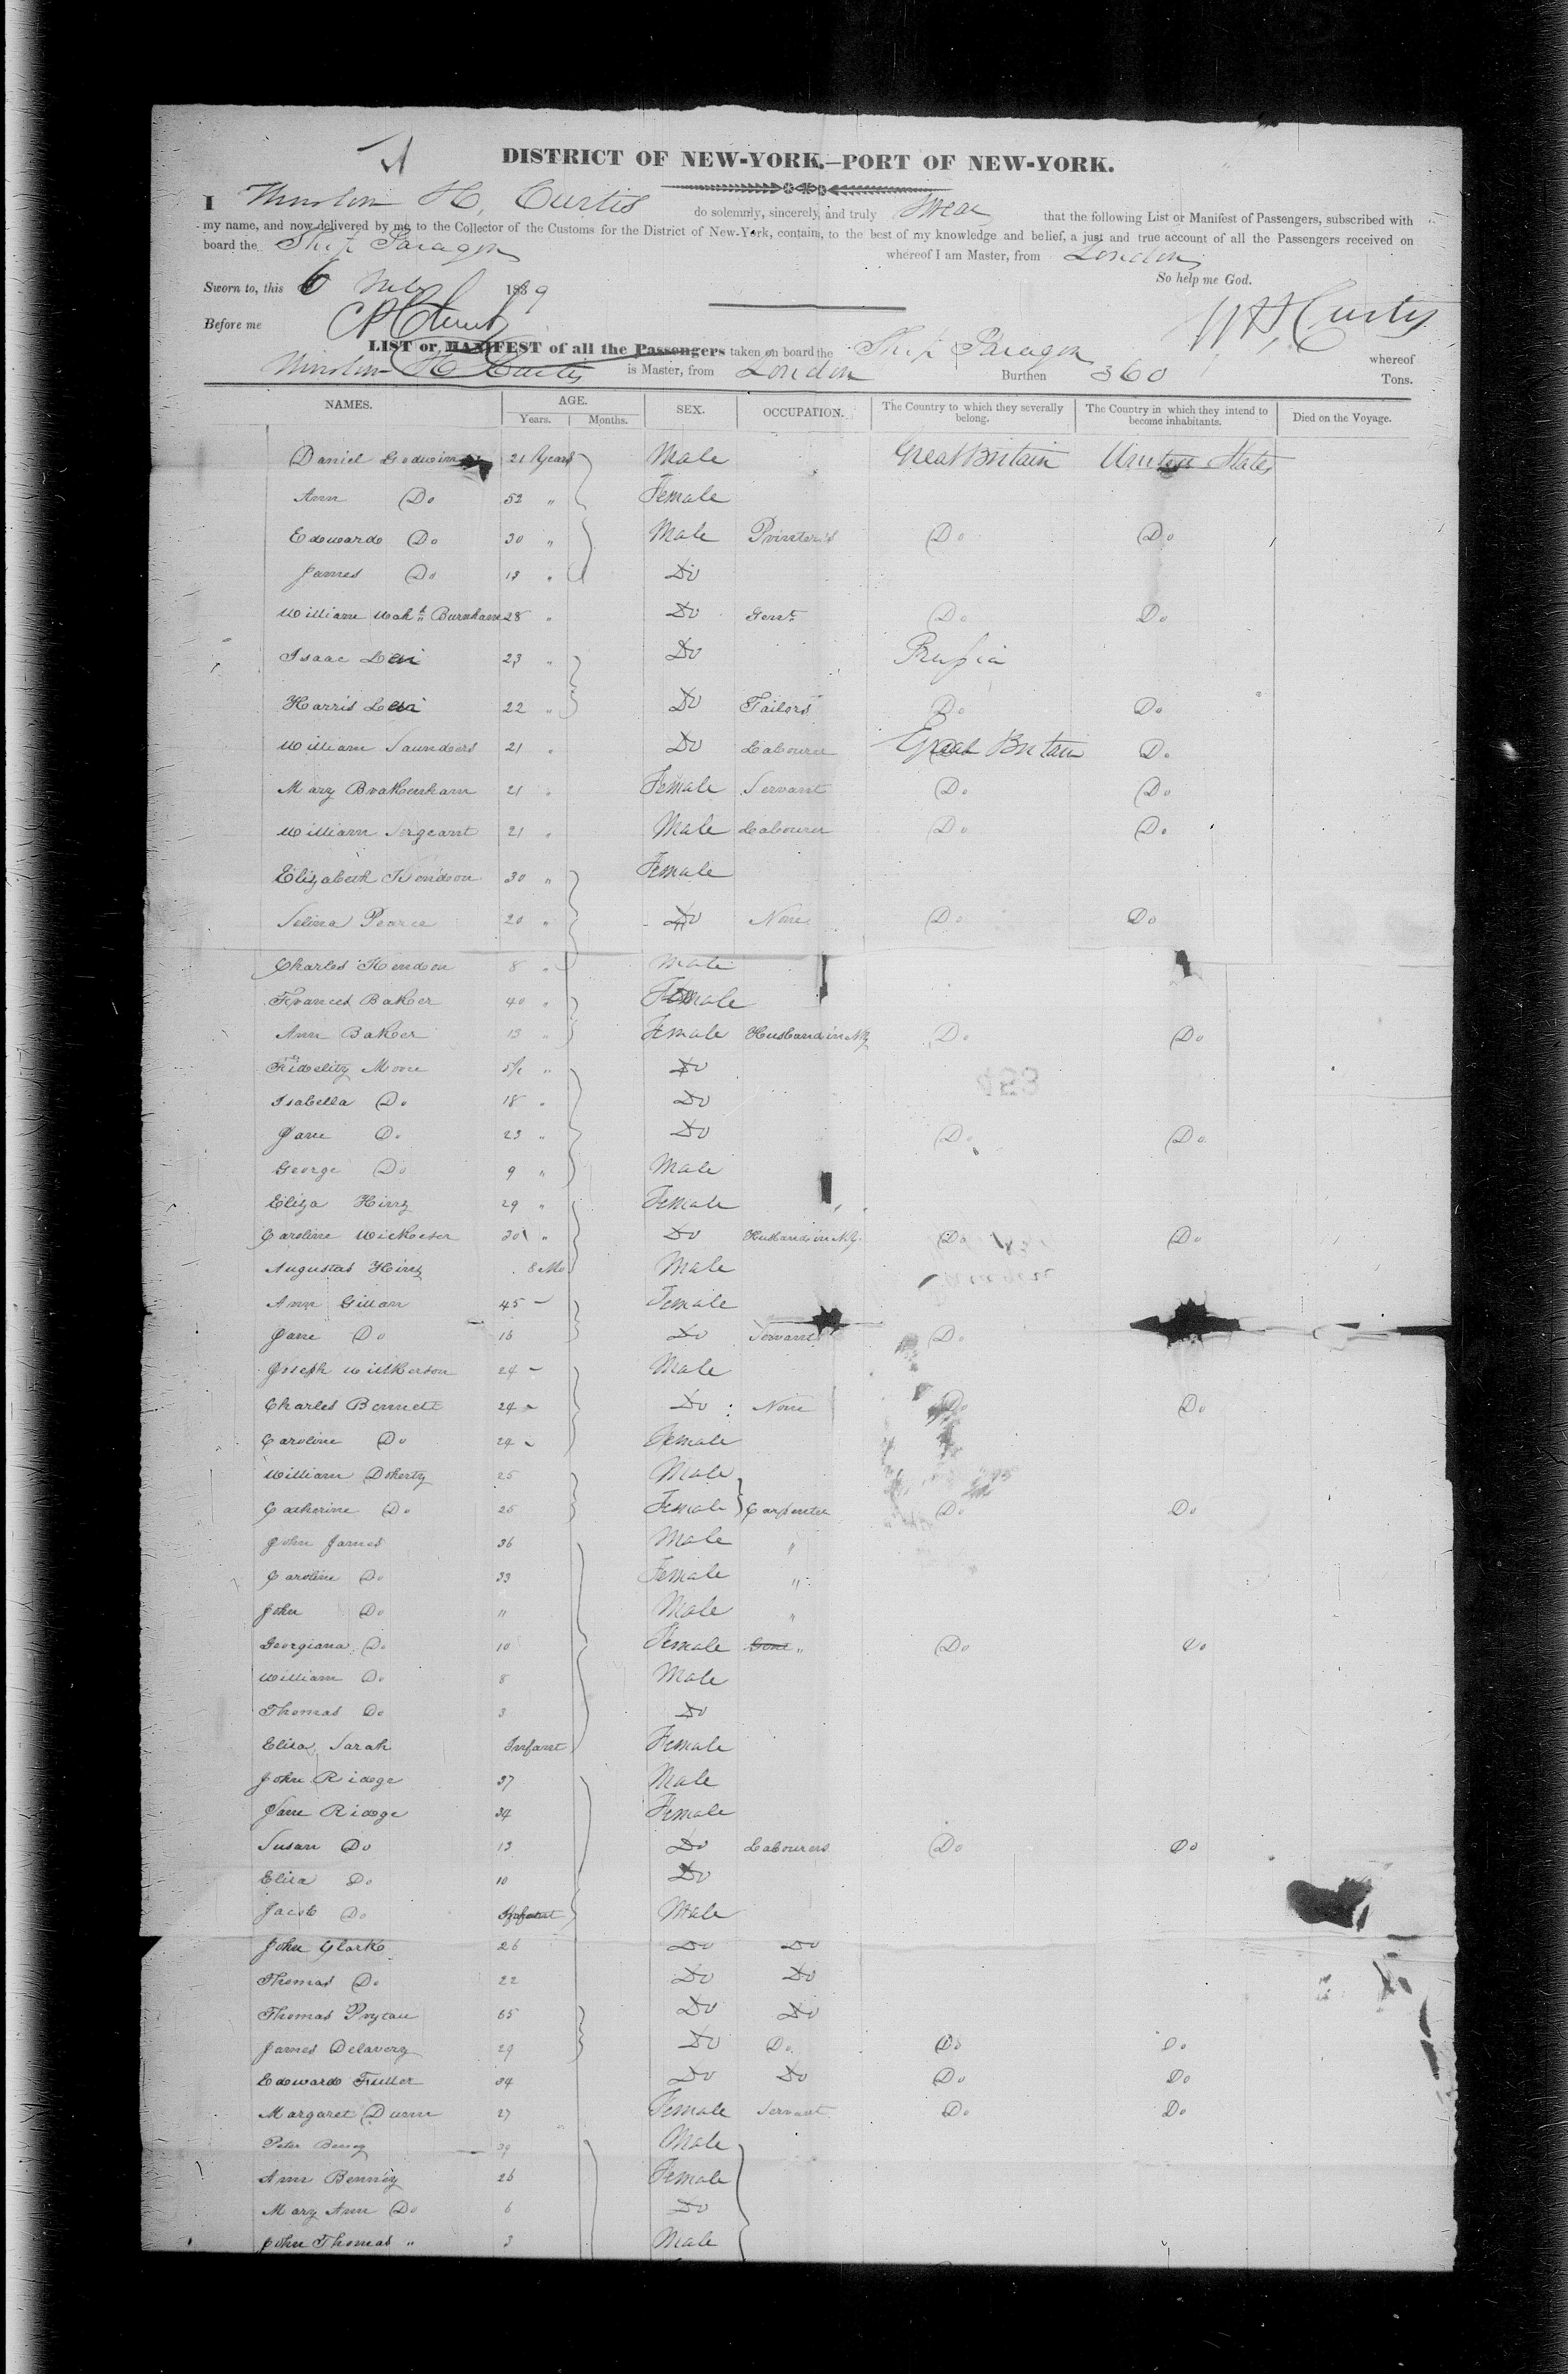 DISTRICT OF NEW-YORK.—PORT OF NEW-YORK.
I Winslow H. Curtis do solemnly, sincerely, and truly Swear that the following List or Manifest of Passengers, subscribed with
my name, and now delivered by me to the Collector of the Customs for the District of New-York, contain, to the best of my knowledge and belief, a just and true account of all the Passengers received on
board the Ship Paragon whereof I am Master, from London
So help me God.
Sworn to, this 6 1839
W H Curtis
Before me
LIST or MANIFEST of all the Passengers taken on board the Ship Paragon whereof
Winslow H Curtis is Master, from London Burthen 360 Tons.
NAMES. AGE. SEX. OCCUPATION. The Country to which they severally belong. The Country in which they intend to become inhabitants. Died on the Voyage.
Years. Months.
Daniel Godwin 21 Years Male Great Britain United States
Ann Do 52 " Female
Edward Do 30 " Male Printers Do Do
James Do 13 " Do
William Burnham 28 " Do Gent Do Do
Isaac Levi 23 " Do Prussia
Harris Levi 22 " Do Tailors Do Do
William Saunders 21 " Do Labourer Great Britain Do
Mary Brakenham 21 " Female Servant Do Do
William Sergeant 21 " Male Labourer Do Do
Elizabeth 30 " Female
Selina Pearce 20 " Do None Do Do
Charles 8 " Male
Frances Baker 40 " Female
Ann Baker 13 " Female Husband in NY Do Do
Fidelity Moore " Do
Isabella Do 18 " Do
Jane Do 23 " Do Do Do
George Do 9 " Male
Eliza 29 " Female
Caroline 30 " Do Husband in N.Y. Do Do
Augustus 8 Mo Male
Ann Gillan 45 Female
Jane Do 16 Do Servants Do
Joseph Wilkerson 24 Male
Charles Bennett 24 Do None Do Do
Caroline Do 24 Female
William Doherty 25 Male
Catherine Do 25 Female Carpenter Do Do
John James 36 Male "
Caroline Do 33 Female "
John Do 11 Male "
Georgiana Do 10 Female " Do Do
William Do 8 Male
Thomas Do 3 Do
Eliza Sarah Infant Female
John Ridge 37 Male
Jane Ridge 34 Female
Susan Do 13 Do Labourers Do Do
Eliza Do 10 Do
Jacob Do Infant Male
John Clark 26 Do Do
Thomas Do 22 Do Do
Thomas 65 Do Do
James Delaverg 29 Do Do Do Do
Edward Fuller 34 Do Do Do Do
Margaret Dunn 27 Female Servant Do Do
Peter 29 Male
Ann Benney 26 Female
Mary Ann Do 6 Do
John Thomas " 3 Male